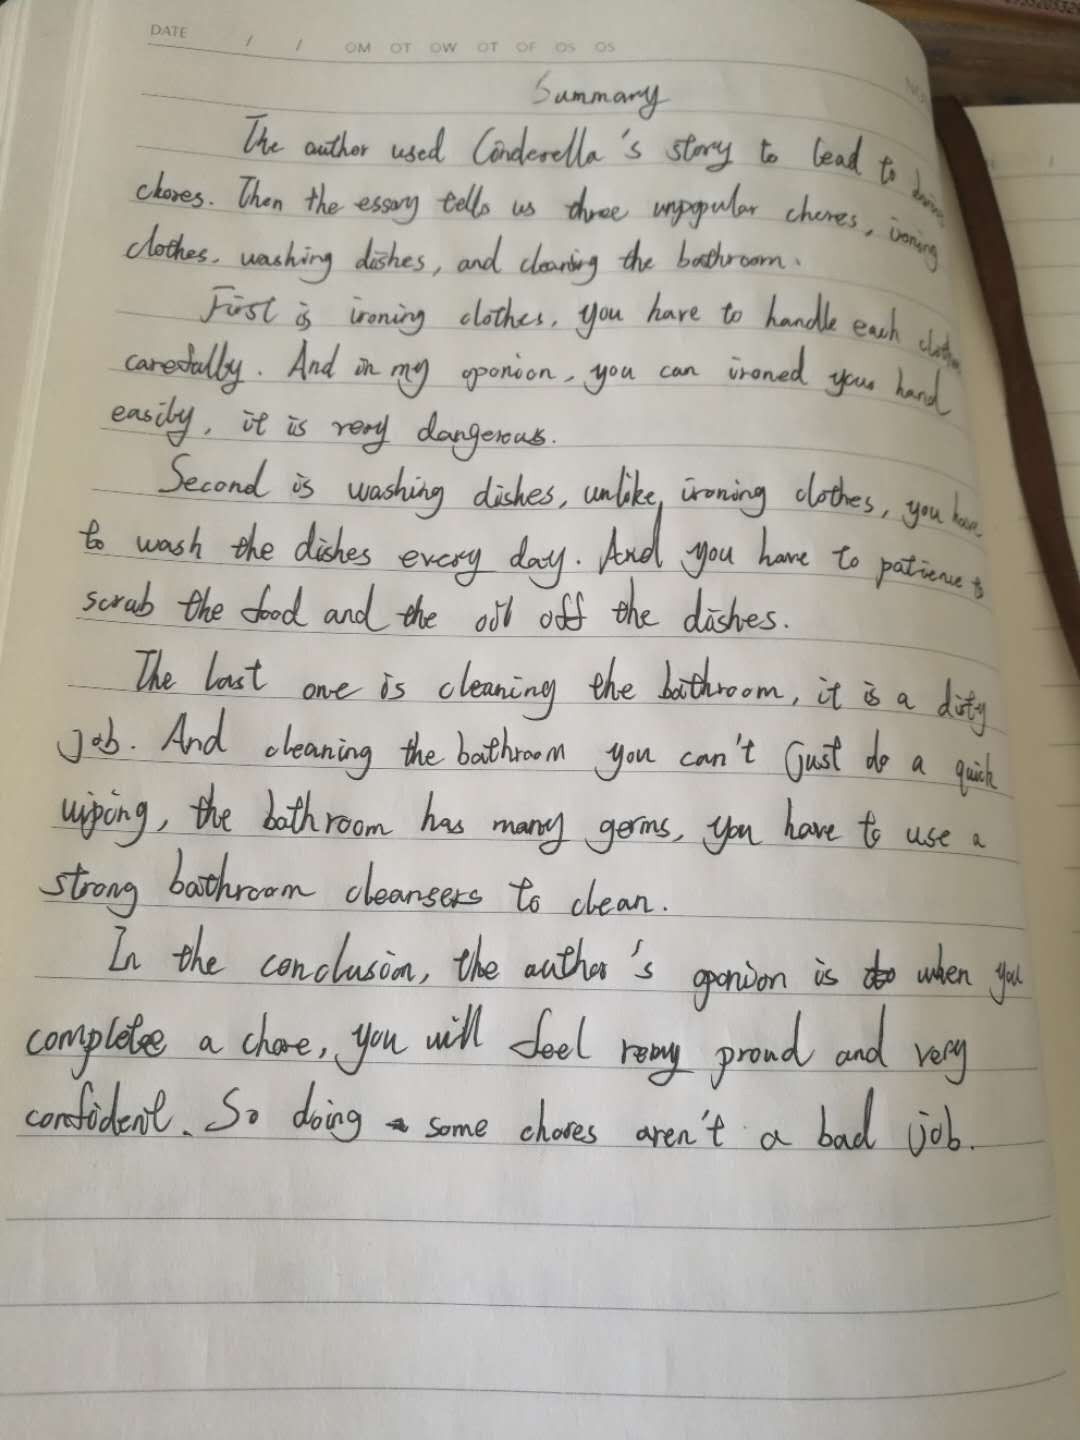 DATE / / OM OT OW OT OF OS OS
Summary
The author used Cinderella's story to lead to
chores. Then the essay tells us three unpopular chores, ironing
clothes, washing dishes, and cleaning the bathroom.
First is ironing clothes, you have to handle each
carefully. And in my oponion, you can ironed your hand
easily, it is very dangerous.
Second is washing dishes, unlike ironing clothes, you have
to wash the dishes every day. And you have to patience to
scrub the food and the oil off the dishes.
The last one is cleaning the bathroom, it is a dirty
job. And cleaning the bathroom you can't just do a quick
wiping, the bathroom has many germs, you have to use a
strong bathroom cleansers to clean.
In the conclusion, the author's oponion is when you
complete a chore, you will feel very proud and very
confident. So doing some chores aren't a bad job.